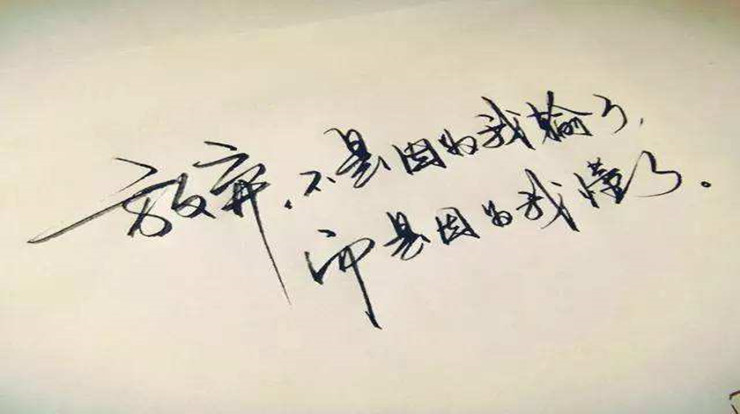 放弃、不是因为我输了，
而是因为我懂了。